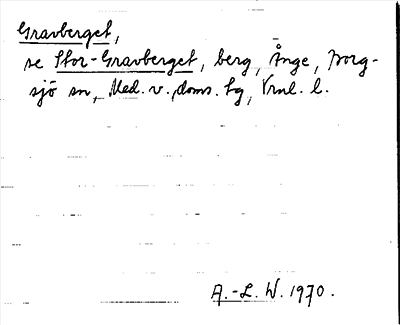 Gravberget,
se Stor-Gravberget, berg, Ånge, Borg-
sjö sn, Med. v., doms. sg, Vrnl. l.
A.-L. W. 1970.